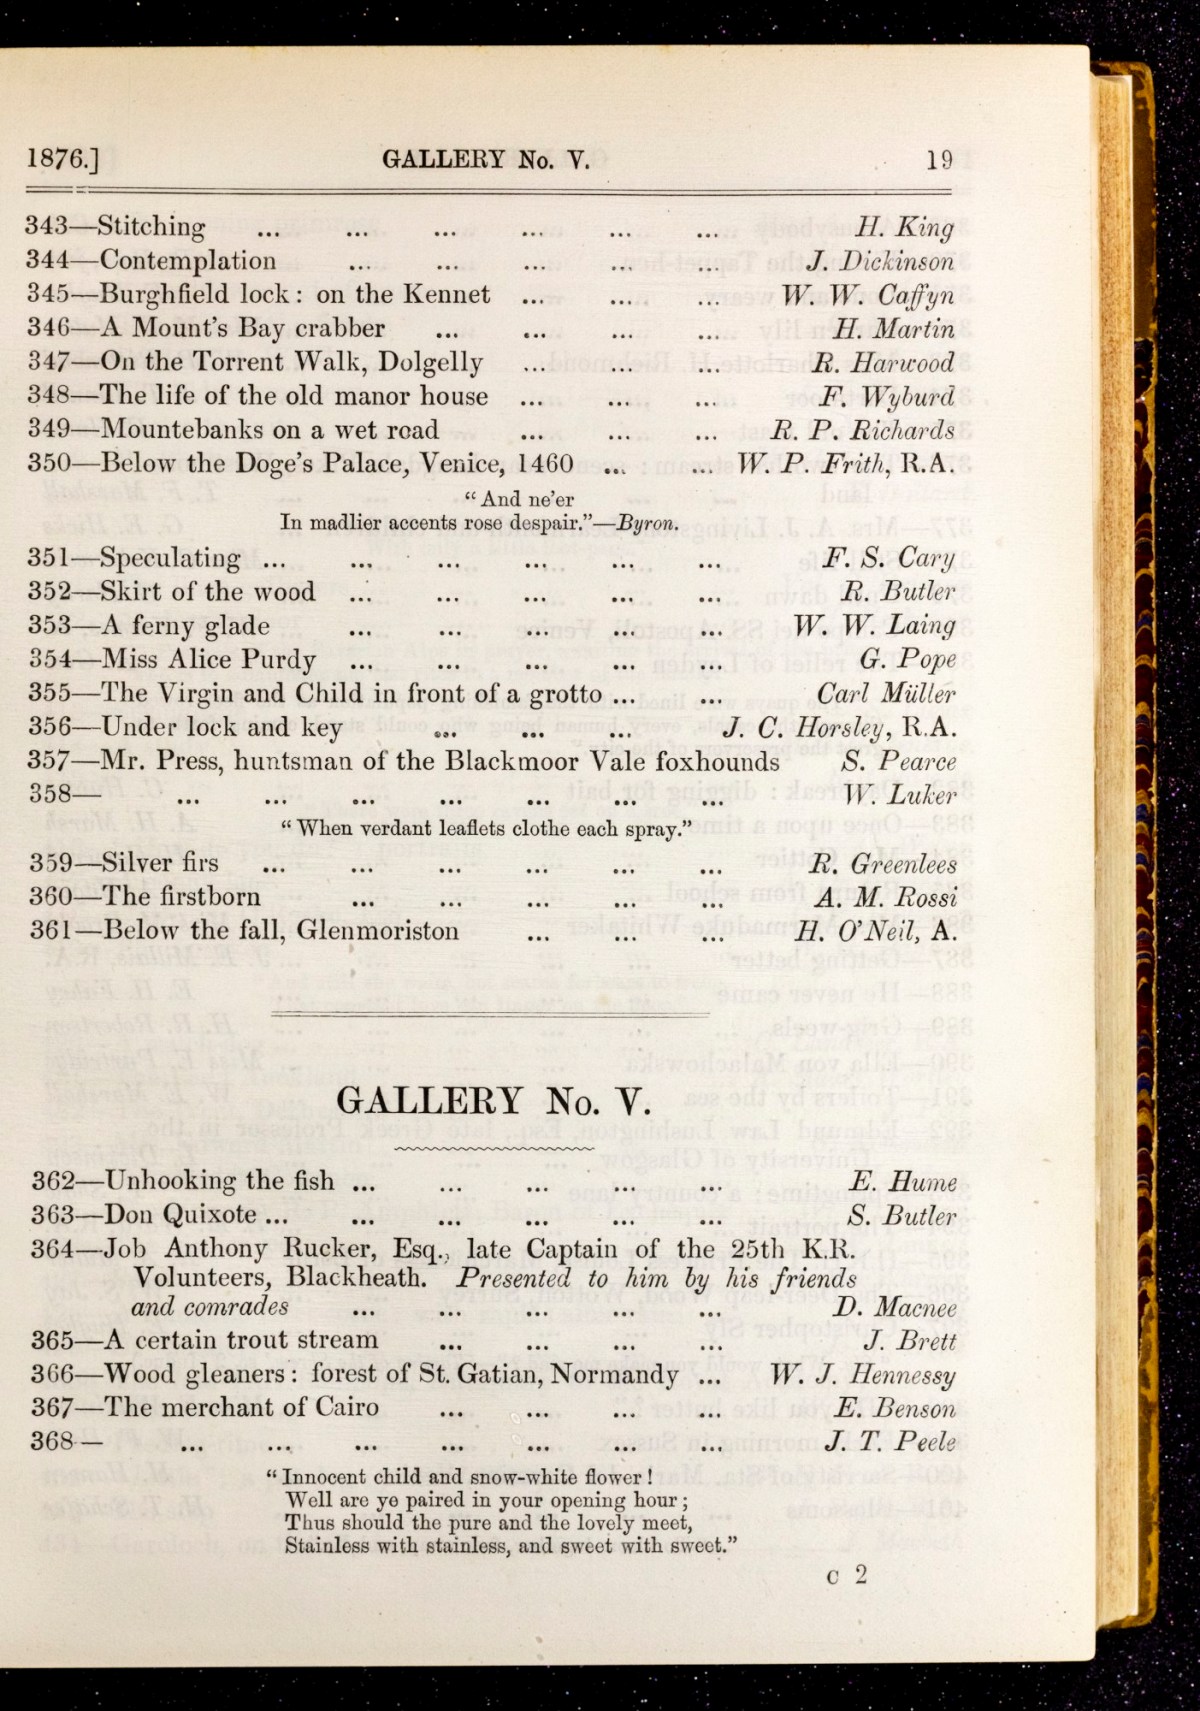 1876.] GALLERY No. V. 19
343—Stitching ... ... ... ... ... ... H. King
344—Contemplation ... ... ... ... ... J. Dickinson
345—Burghfield lock: on the Kennet ... ... ... W. W. Caffyn
346—A Mount's Bay crabber ... ... ... ... H. Martin
347—On the Torrent Walk, Dolgelly ... ... ... R. Harwood
348—The life of the old manor house ... ... ... F. Wyburd
349—Mountebanks on a wet road ... ... ... R. P. Richards
350—Below the Doge's Palace, Venice, 1460 ... ... W. P. Frith, R.A.
“And ne'er
In madlier accents rose despair.”—Byron.
351—Speculating ... ... ... ... ... ... F. S. Cary
352—Skirt of the wood ... ... ... ... ... R. Butler
353—A ferny glade ... ... ... ... ... W. W. Laing
354—Miss Alice Purdy ... ... ... ... ... G. Pope
355—The Virgin and Child in front of a grotto ... ... Carl Müller
356—Under lock and key ... ... ... J. C. Horsley, R.A.
357—Mr. Press, huntsman of the Blackmoor Vale foxhounds S. Pearce
358— ... ... ... ... ... ... ... W. Luker
“When verdant leaflets clothe each spray.”
359—Silver firs ... ... ... ... ... ... R. Greenlees
360—The firstborn ... ... ... ... ... A. M. Rossi
361—Below the fall, Glenmoriston ... ... ... H. O'Neil, A.
GALLERY No. V.
362—Unhooking the fish ... ... ... ... ... E. Hume
363—Don Quixote ... ... ... ... ... ... S. Butler
364—Job Anthony Rucker, Esq., late Captain of the 25th K.R.
Volunteers, Blackheath. Presented to him by his friends
and comrades ... ... ... ... ... D. Macnee
365—A certain trout stream ... ... ... ... J. Brett
366—Wood gleaners: forest of St. Gatian, Normandy ... W. J. Hennessy
367—The merchant of Cairo ... ... ... ... E. Benson
368— ... ... ... ... ... ... ... J. T. Peele
“Innocent child and snow-white flower!
Well are ye paired in your opening hour;
Thus should the pure and the lovely meet,
Stainless with stainless, and sweet with sweet.”
C 2